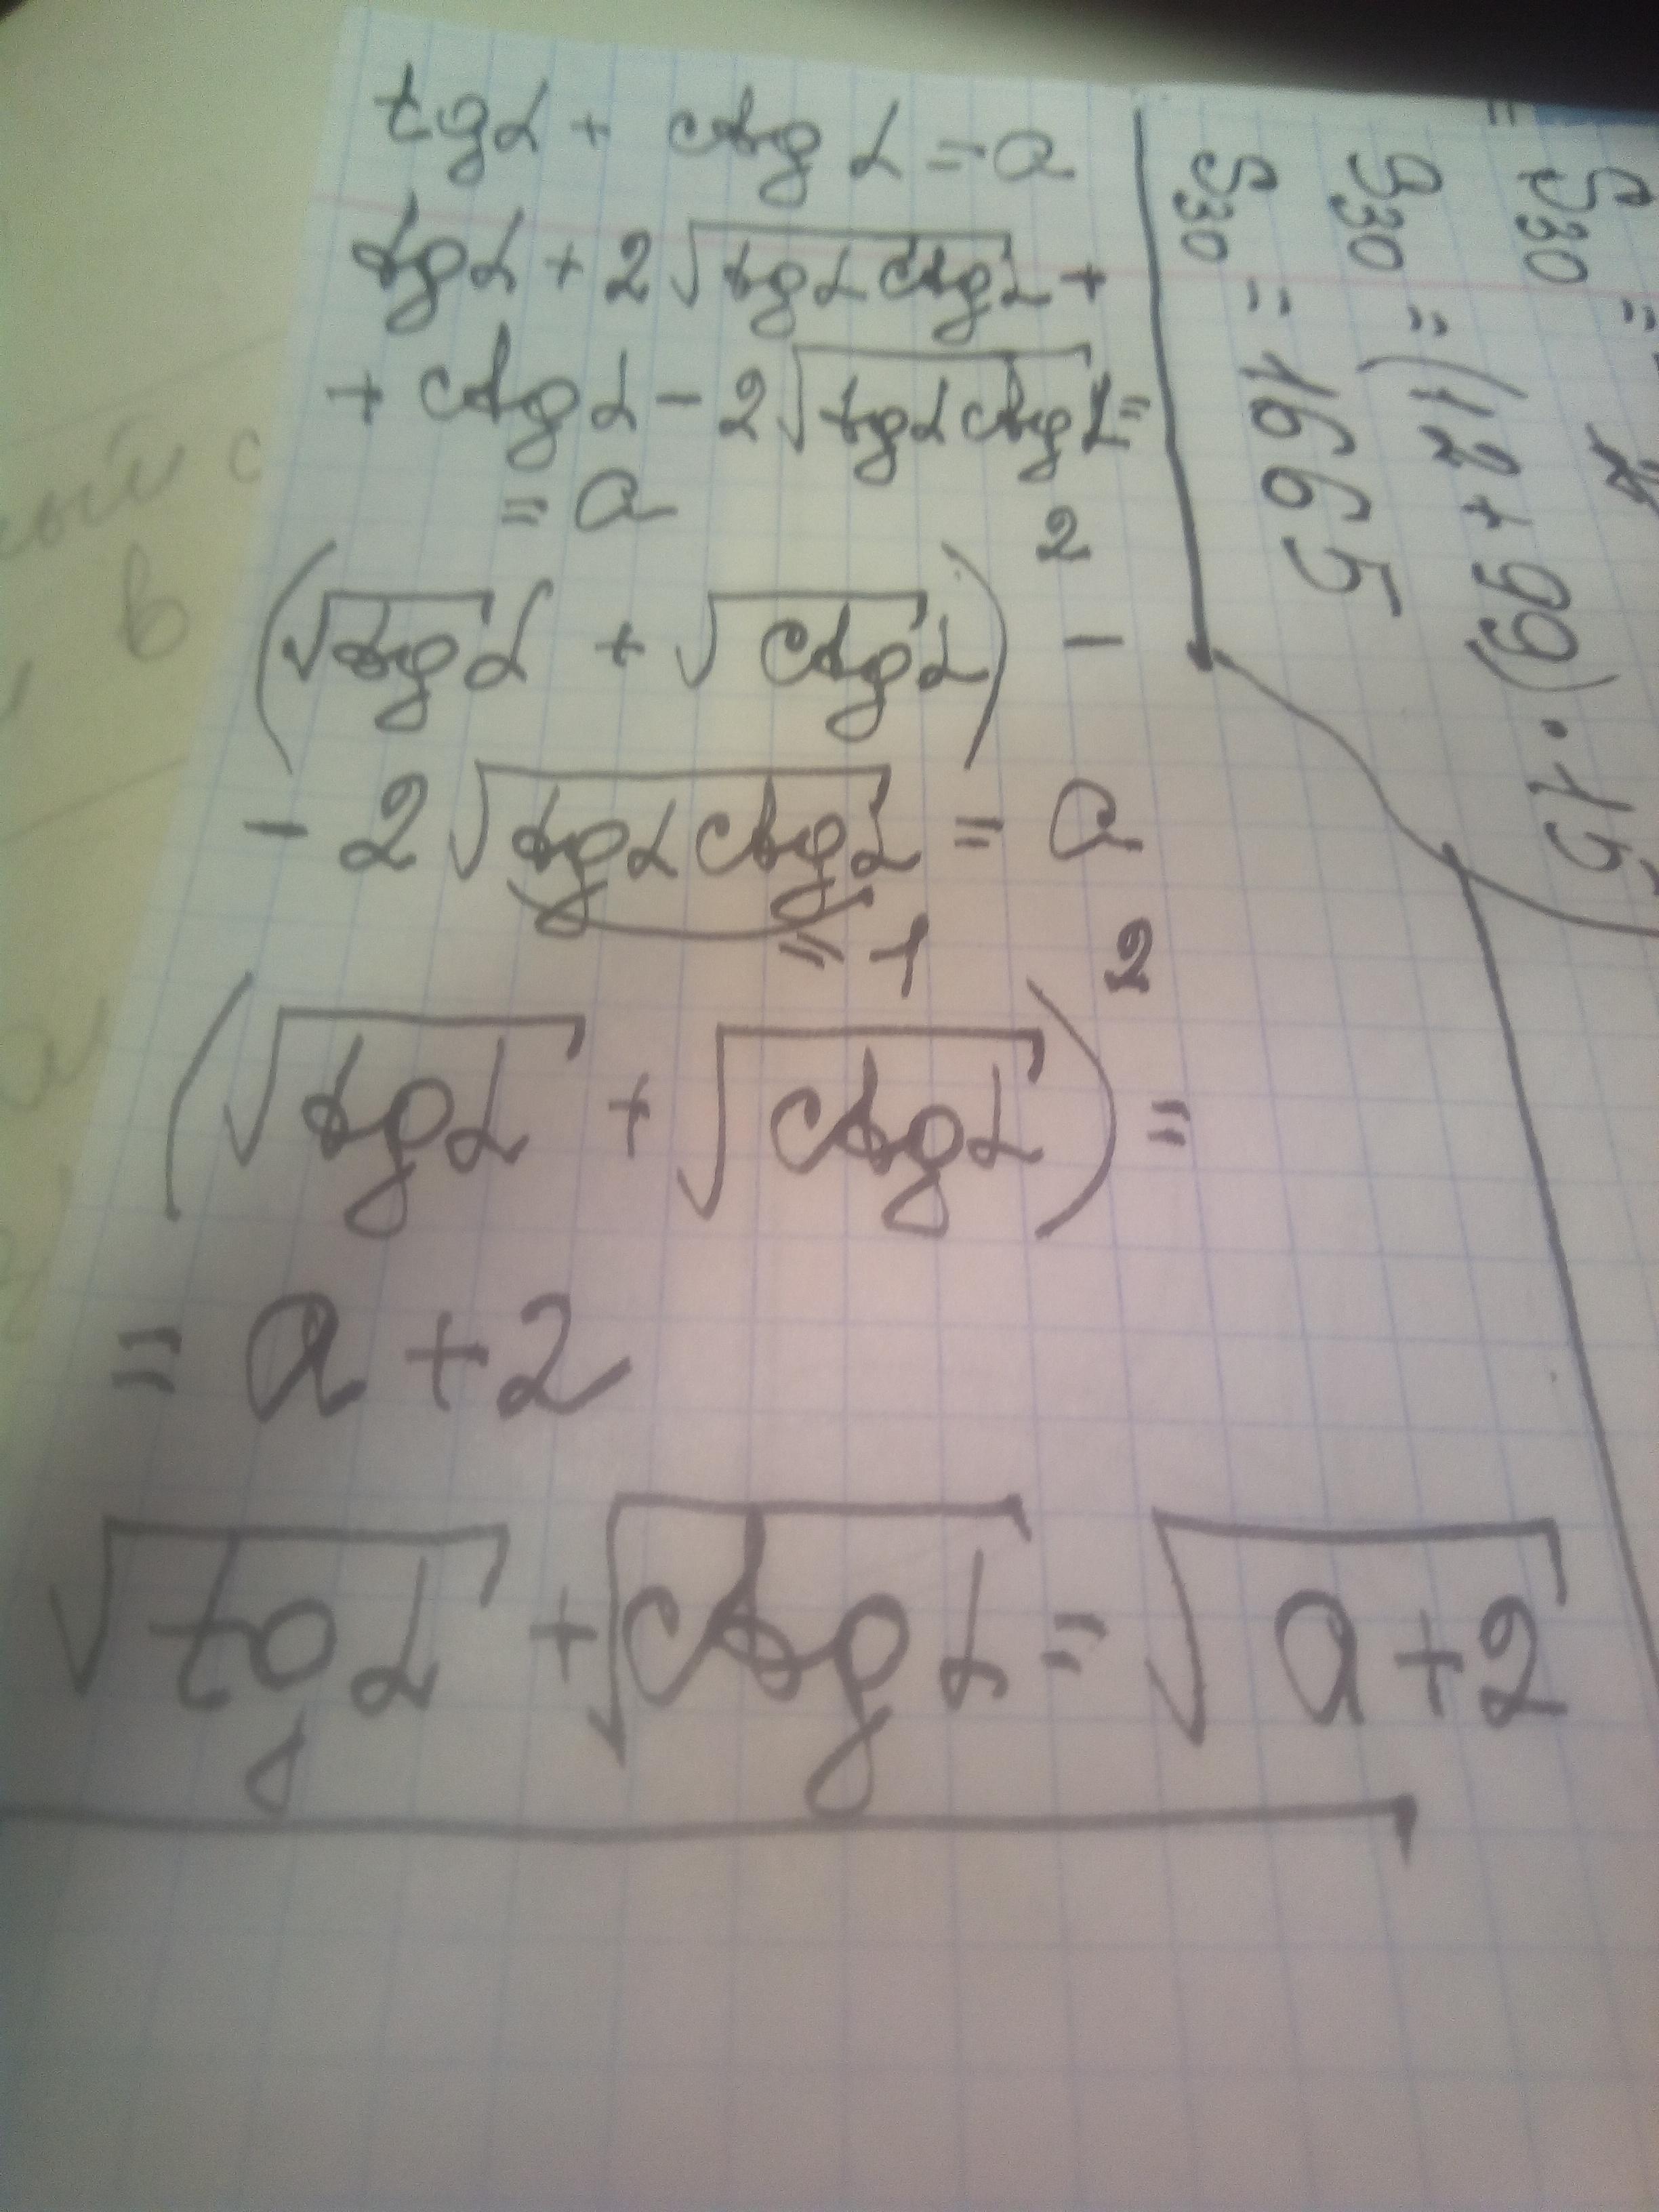 tgα + ctgα = a
tgα + 2√tgα ctgα +
+ ctgα - 2√tgα ctgα =
= a
(√tgα + √ctgα)² -
- 2√tgα ctgα = a
= 1
(√tgα + √ctgα)² =
= a + 2
√tgα + √ctgα = √a+2
S30 =
S30 = (12 + 99) · 15
S30 = 1665
ый с
в